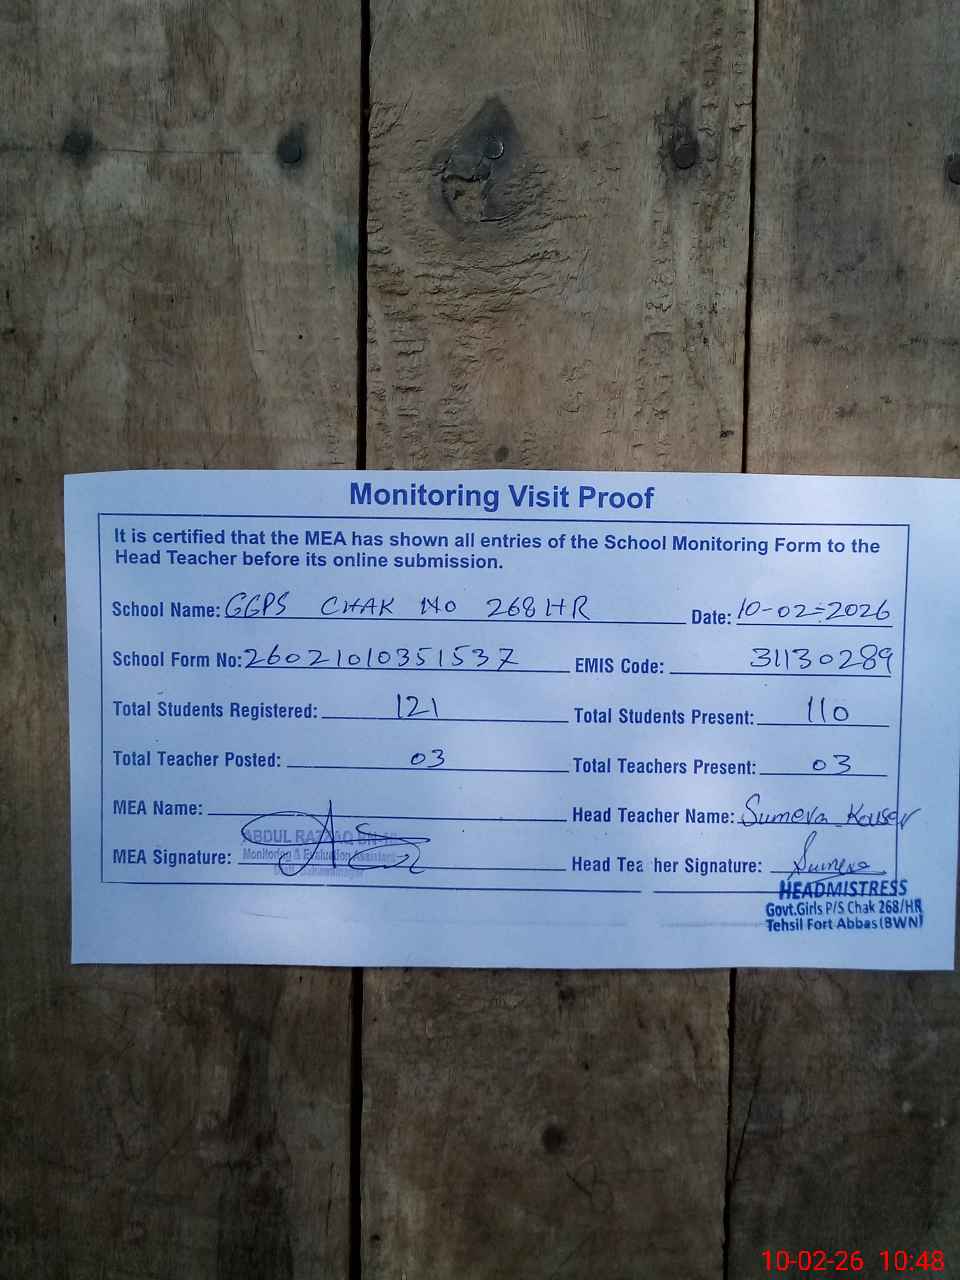 Monitoring Visit Proof
It is certified that the MEA has shown all entries of the School Monitoring Form to the
Head Teacher before its online submission.
School Name: GGPS CHAK NO 268 HR Date: 10-02-2026
School Form No: 26021010351537 EMIS Code: 31130289
Total Students Registered: 121 Total Students Present: 110
Total Teacher Posted: 03 Total Teachers Present: 03
MEA Name: Head Teacher Name: Sumera Kousar
ABDUL RAZZAQ
MEA Signature: Monitoring & Evaluation Assistant Head Teacher Signature: Sumera
HEADMISTRESS
Govt.Girls P/S Chak 268/HR
Tehsil Fort Abbas (BWN)
10-02-26 10:48